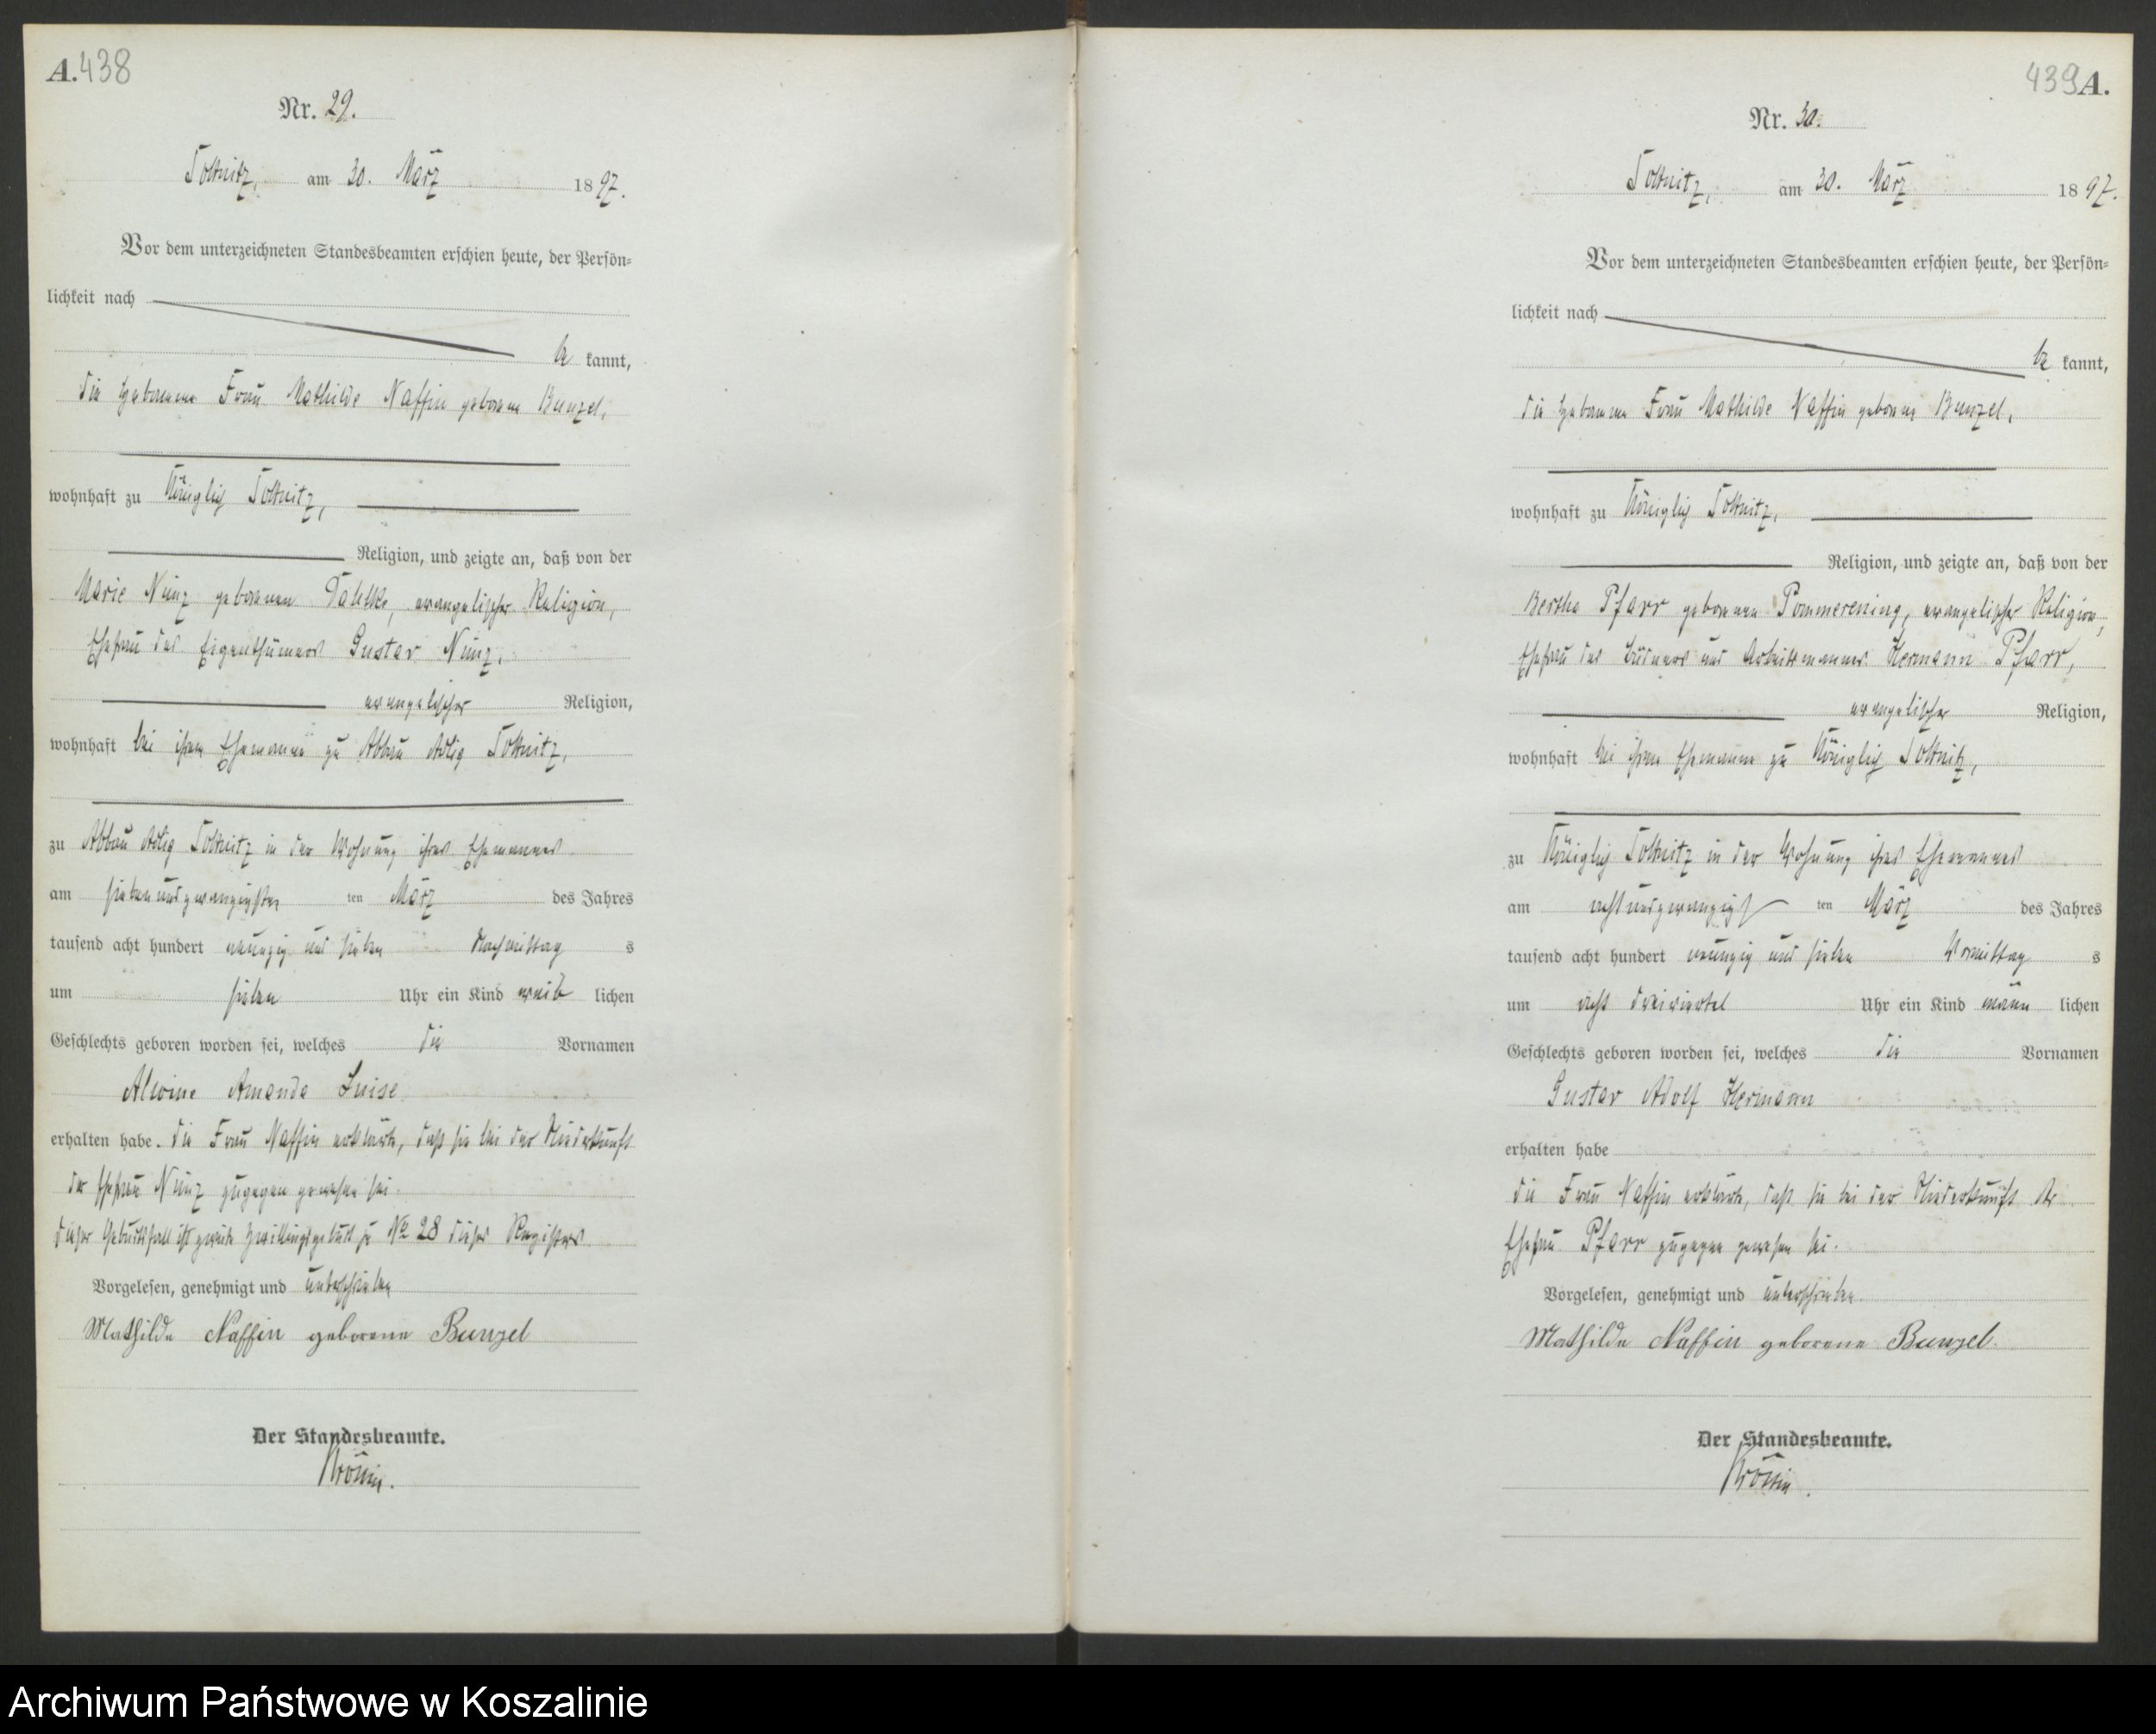 A. 438
Nr. 29.
Toltnitz, am 30. März 1897.
Vor dem unterzeichneten Standesbeamten erschien heute, der Persön-
lichkeit nach
be kannt,
die Hebamme Frau Mathilde Naffin geborene Bunzel,
wohnhaft zu Königlich
Religion, und zeigte an, daß von der
Marie Nünz geborenen evangelischer Religion,
Ehefrau des Eigenthümers Gustav Nünz,
evangelischer Religion,
wohnhaft bei ihrem Ehemanne zu Abbau Adlig
zu Abbau Adlig in der Wohnung ihres Ehemannes
am siebenundzwanzigsten ten März des Jahres
tausend acht hundert neunzig und sieben Nachmittag s
um sieben Uhr ein Kind weib lichen
Geschlechts geboren worden sei, welches die Vornamen
Alwine Amanda Luise
erhalten habe. Die Frau Naffin erklärte, daß sie bei der Niederkunft
der Ehefrau Nünz zugegen gewesen sei.
Dieser Geburtsfall ist zweite Zwillingsgeburt zu No 28 dieses Registers.
Vorgelesen, genehmigt und unterschrieben
Mathilde Naffin geborene Bunzel
Der Standesbeamte.
439 A.
Nr. 30.
am 30. März 1897.
Vor dem unterzeichneten Standesbeamten erschien heute, der Persön-
lichkeit nach
be kannt,
die Hebamme Frau Mathilde Naffin geborene Bunzel,
wohnhaft zu Königlich
Religion, und zeigte an, daß von der
Bertha Pfarr geborenen Pommerening, evangelischer Religion,
Ehefrau des Büdners und Arbeitsmannes Hermann Pfarr,
evangelischer Religion,
wohnhaft bei ihrem Ehemanne zu Königlich
zu Königlich in der Wohnung ihres Ehemannes
am achtundzwanzigst ten März des Jahres
tausend acht hundert neunzig und sieben Vormittag s
um acht dreiviertel Uhr ein Kind männ lichen
Geschlechts geboren worden sei, welches die Vornamen
Gustav Adolf Hermann
erhalten habe
Die Frau Naffin erklärte, daß sie bei der Niederkunft der
Ehefrau Pfarr zugegen gewesen sei.
Vorgelesen, genehmigt und unterschrieben.
Mathilde Naffin geborene Bunzel.
Der Standesbeamte.
Archiwum Państwowe w Koszalinie